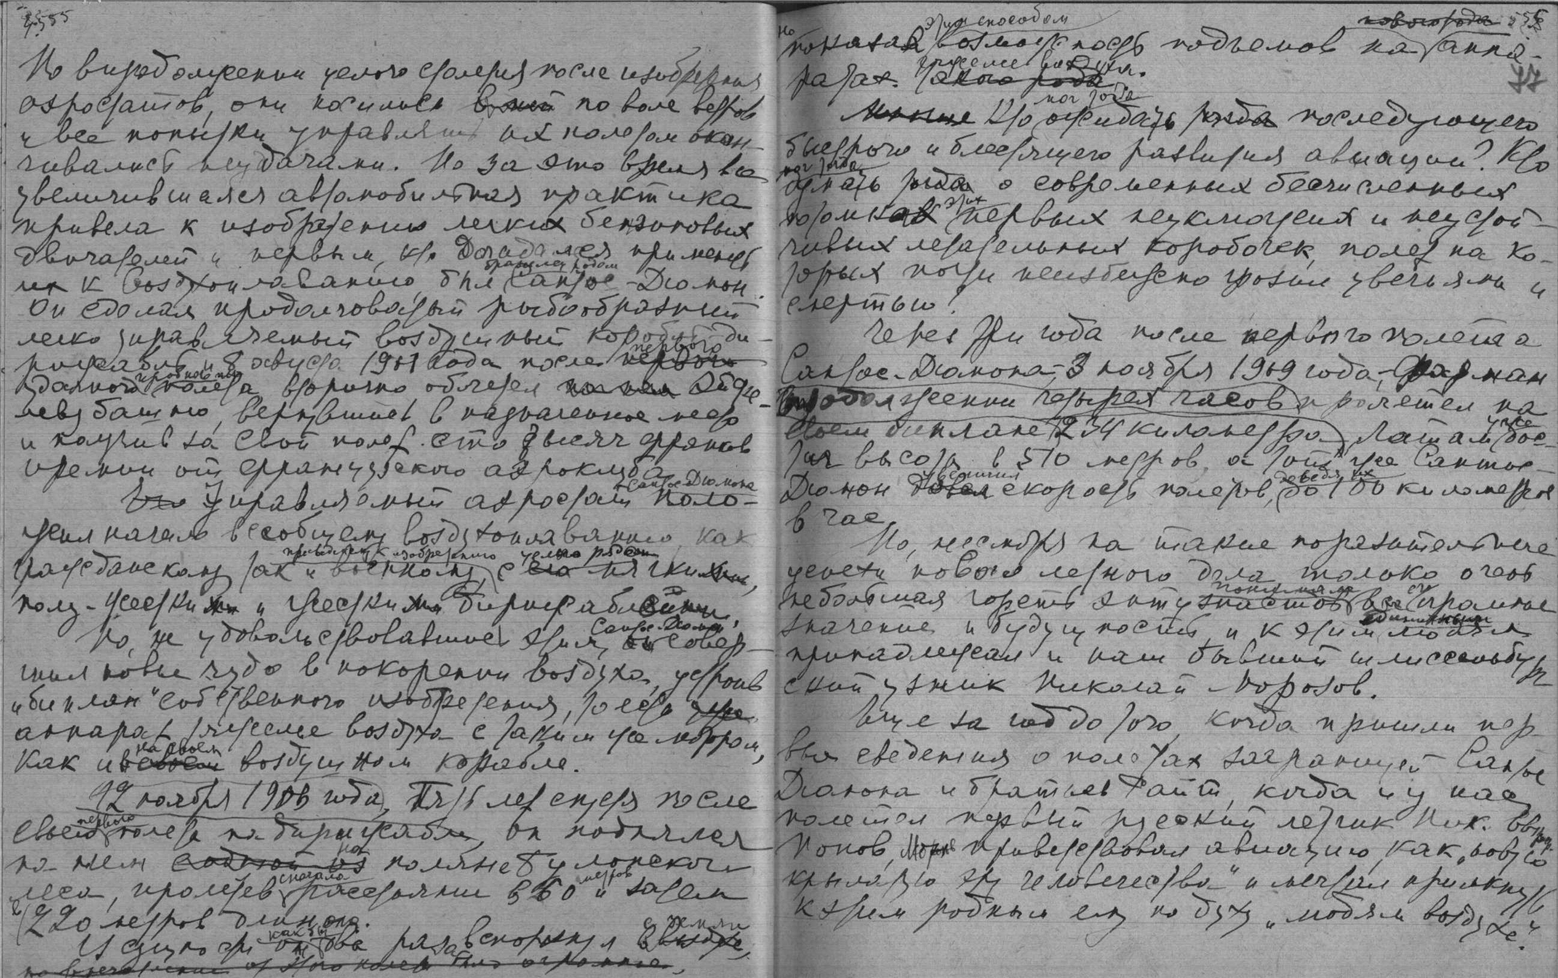 555
На виродолжении целого столетия после изобретения
аэростатов, они носились по воле ветров
и все попытки управлять их полетом окан-
чивались неудачами. Но за это время все
увеличившаяся автомобильная практика
привела к изобретению легких бензиновых
двигателей и первым, кто догадался применить
их к воздухоплаванию был бразилец родом Сантос-Дюмон.
Он сделал продолговатый рыбообразный
легко управляемый воздушный корабль ди-
рижабль и 8 августа 1901 года после первого
удачного полета вторично облетел Эйфе-
леву башню, вернувшись в назначенное место
и получив за свой полет сто тысяч франков
премии от французского аэроклуба.
Управляемый аэростат Сантос-Дюмона поло-
жил начало всеобщему воздухоплаванию, как
гражданскому так и военному, приведшему к изобретению целого ряда мягких,
полу-жестких и жестких дирижаблей.
Но, не удовольствовавшись этим, Сантос-Дюмон совер-
шил новое чудо в покорении воздуха, устроив
"биплан" собственного изобретения, то есть
аппарат тяжелее воздуха с таким же мотором,
как и на своем воздушном корабле.
12 ноября 1906 года, пять лет спустя после
своего первого полета на дирижабле, он поднялся
на нем на поляне Булонского
леса, пролетев сначала расстояние в 60 и затем
в 220 метров длиною.
И сущно эти как бы два раза вспорхнул с земли
но впечатление от этого полета было огромное.
показав этим способом возможность подъемов на аппа-
ратах тяжелее воздуха.
Кто мог тогда ожидать последующего
быстрого и блестящего развития авиации? Кто
мог тогда думать о современных бесчисленных
потомках этих первых неуклюжих и неустой-
чивых летательных коробочек, полет на ко-
торых почти неизбежно грозил увечьями и
смертью!
Через три года после первого полета
Сантос-Дюмона, 3 ноября 1909 года, Фарман
в продолжении четырех часов пролетел на
своем биплане 234 километра, Латам уже дос-
тиг высоты в 510 метров, а тот же Сантос-
Дюмон увеличил скорость полетов, доведя их до 100 километров
в час.
Но, несмотря на такие поразительные
успехи нового летного дела, только очень
небольшая горсть энтузиастов понимала все его громадное
значение и будущность, и к этим единичным людям
принадлежал и наш бывший шлиссельбург-
ский узник Николай Морозов.
Еще за год до того, когда пришли пер-
вые сведения о полетах заграницей Сантос
Дюмона и братьев Райт, когда и у нас
полетел первый русский летчик Ник. Евг.
Попов, Морозов приветствовал авиацию, как "новую
крылатую эру человечества" и мечтал примкнуть
к этим родным ему по духу "людям воздуха".